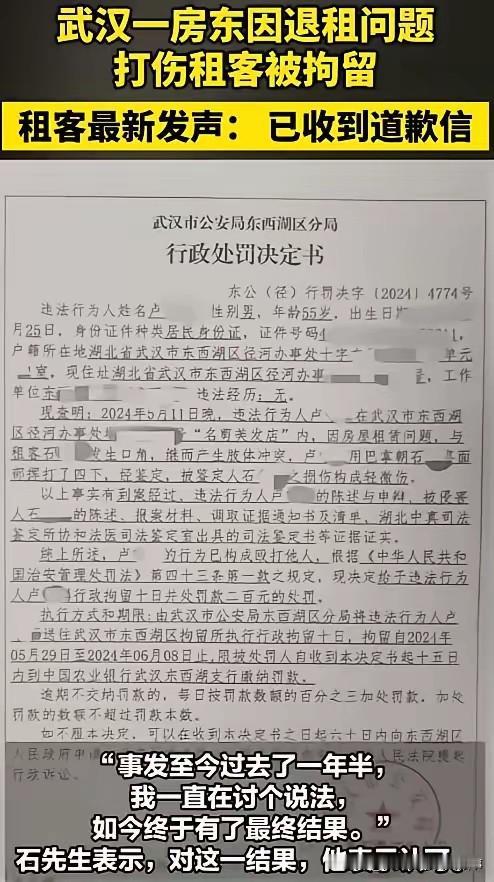 武汉一房东因退租问题
打伤租客被拘留
租客最新发声： 已收到道歉信
武汉市公安局东西湖区分局
行政处罚决定书
东公（径）行罚决字〔2024〕4774号
违法行为人姓名卢 性别男，年龄55岁，出生日期
月25日，身份证件种类居民身份证，证件号码4
户籍所在地湖北省武汉市东西湖区径河办事处十字 单元
室，现住址湖北省武汉市东西湖区径河办事 ，工作
单位东 违法经历：无。
现查明：2024年5月11日晚，违法行为人卢 在武汉市东西湖
区径河办事处 “名剪美发店”内，因房屋租赁问题，与
租客石 发生口角，继而产生肢体冲突，卢 用巴掌朝石 面
部挥打了四下，经鉴定，被鉴定人石 之损伤构成轻微伤。
以上事实有到案经过、违法行为人卢 的陈述与申辩、被侵害
人石 的陈述、报案材料、调取证据通知书及清单、湖北中真司法
鉴定所协和法医司法鉴定室出具的司法鉴定书等证据证实。
综上所述，卢 的行为已构成殴打他人，根据《中华人民共和
国治安管理处罚法》第四十三条第一款之规定，现决定给予违法行为
人卢 行政拘留十日并处罚款二百元的处罚。
执行方式和期限：由武汉市公安局东西湖区分局将违法行为人卢
送往武汉市东西湖区拘留所执行行政拘留十日，拘留自2024年
05月29日至2024年06月08日止，限被处罚人自收到本决定书起十五日
内到中国农业银行武汉东西湖支行缴纳罚款。
逾期不交纳罚款的，每日按罚款数额的百分之三加处罚款，加处
罚款的数额不超过罚款本数。
如不服本决定，可以在收到本决定书之日起六十日内向东西湖区
人民政府申 人民法院提起
行政诉讼。
“事发至今过去了一年半，
我一直在讨个说法，
如今终于有了最终结果。”
石先生表示，对这一结果，他